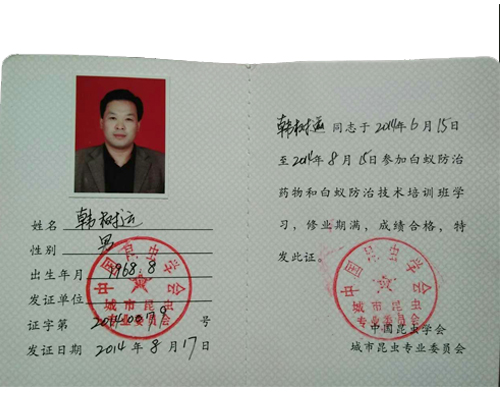 姓名 韩树运
性别 男
出生年月 1968.8
发证单位
证字第 20140079 号
发证日期 2014年8月17日
中国昆虫学会
城市昆虫
专业委员会
韩树运同志于2014年6月15日
至2014年8月15日参加白蚁防治
药物和白蚁防治技术培训班学
习，修业期满，成绩合格，特
发此证。
中国昆虫学会
城市昆虫专业委员会
中国昆虫学会
城市昆虫
专业委员会